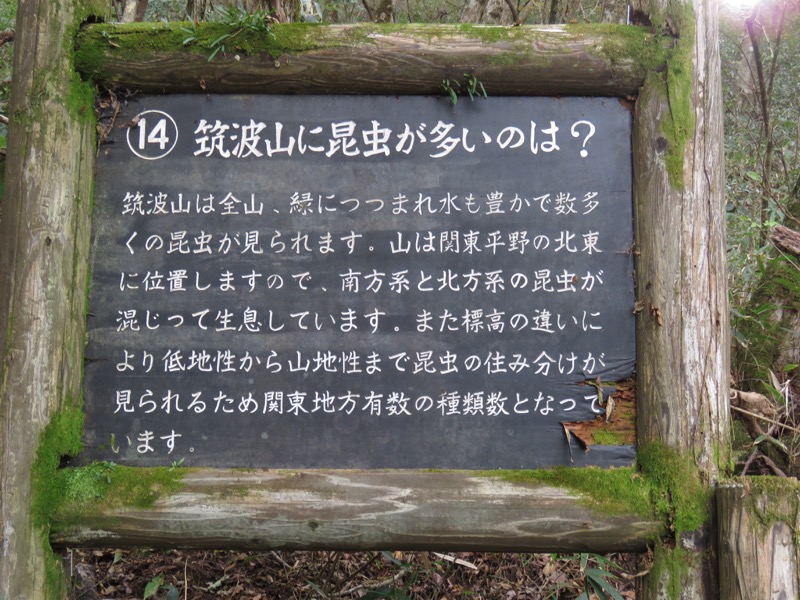 ⑭ 筑波山に昆虫が多いのは？
筑波山は全山、緑につつまれ水も豊かで数多
くの昆虫が見られます。山は関東平野の北東
に位置しますので、南方系と北方系の昆虫が
混じって生息しています。また標高の違いに
より低地性から山地性まで昆虫の住み分けが
見られるため関東地方有数の種類数となって
います。